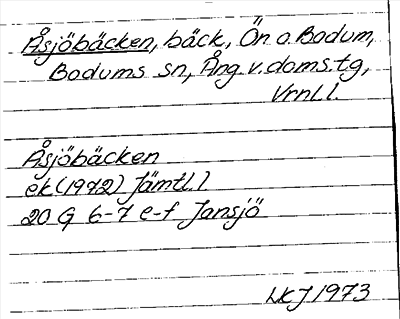 Åsjöbäcken, bäck, Ön o. Bodum,
Bodums sn, Ång. v. doms. tg,
Vrnl. l.
Åsjöbäcken
ek (1972) Jämtl. l
20 G 6-7 e-f Jansjö
LKJ 1973